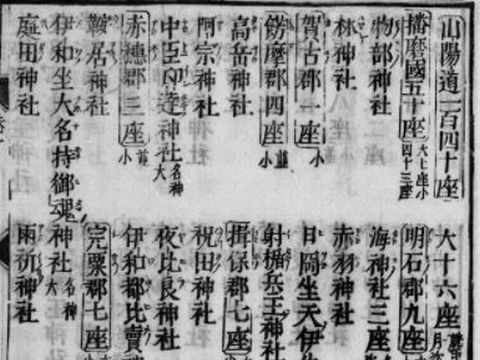 山陽道一百四十座 大十六座
播磨國五十座 大七座小四十三座 明石郡九座
物部神社 海神社三座
林神社 赤羽神社
賀古郡一座 小 日岡坐天伊
餝摩郡四座 並小 射楯兵主神社
高岳神社 揖保郡七座
阿宗神社 祝田神社
中臣印達神社 名神大 夜比良神社
赤穗郡三座 並小 伊和都比賣神
鞍居神社 完粟郡七座
伊和坐大名持御魂神社 名神大
庭田神社 雨祈神社